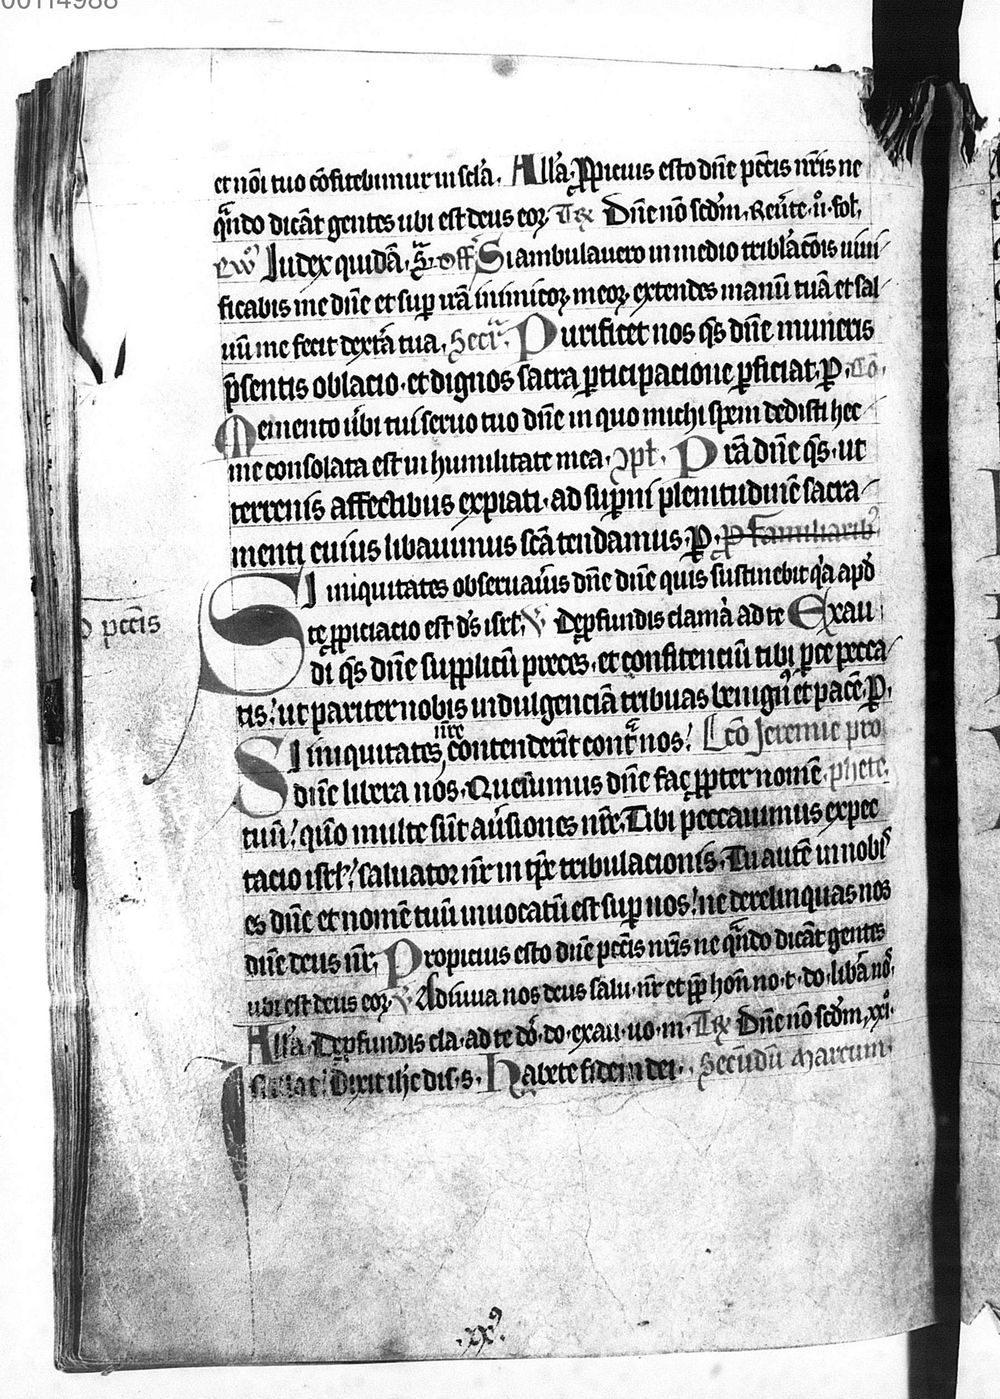 00114988
et nōi tuo cōfitebimur in sclā. Allā. Ꝓpicius esto dn̄e pctīs nr̄is ne
qn̄do dicāt gentes ubi est deus eoꝝ Tꝶ Dn̄e nō scdm̄. Reūte. ii. fol.
ew̄ Judex quidā. Off Si ambulauero in medio tribulac̄ōis uiui
ficabis me dn̄e et suꝑ irā inimicoꝝ meoꝝ extendes manū tuā et sal
uū me fecit dext̄a tua. Secr̄. Purificet nos qs̄ dn̄e muneris
p̄sentis oblacio. et dignos sacra ꝑticipacione ꝑficiat. P. Cō.
Memento ūbi tui seruo tuo dn̄e in quo michi spem dedisti hec
me consolata est in humilitate mea. Ꝯpl̄. Prā dn̄e qs̄. ut
terrenis affectibus expiati. ad suꝑni plenitudinē sacra
menti cuius libauimus sc̄ā tendamus. P. P familiarib
Si iniquitates obseruaūis dn̄e dn̄e quis sustinebit qa apd
ō pctīs
te ꝓpiciacio est ds̄ isrl̄. V Deꝓfundis clamā ad te Exau
di qs̄ dn̄e supplicū preces. et confitenciū tibi ꝑce pecca
tis. ut pariter nobis indulgenciā tribuas benign et pacē. P.
nr̄e
Si iniquitates contenderīt cont̄ nos. Lcō Jeremie pro
dn̄e libera nos. Quesūmus dn̄e fac ꝓpter nomē phete.
tuū. qm̄o multe sūt aūsiones nr̄e. Tibi peccauimus expec
tacio isrl̄. saluator nr̄ in tp̄e tribulacionis. Tu autē in nobis
es dn̄e et nomē tuū inuocatū est suꝑ nos. ne derelinquas nos
dn̄e deus nr̄. Propicius esto dn̄e pctīs nr̄is ne qn̄do dicāt gentes
ubi est deus eoꝝ. V Adiuua nos deus salu. nr̄ et pp̄ hon̄ no. t. do. libā nos.
Allā. Deꝓfundis cla. ad te dō. do. exau. uo. m. Tꝶ Dn̄e nō scdm̄. xxi.
Dixit ih̄c dis. s. Habete fidem dei. Secūdū Marcum.
.xx9.